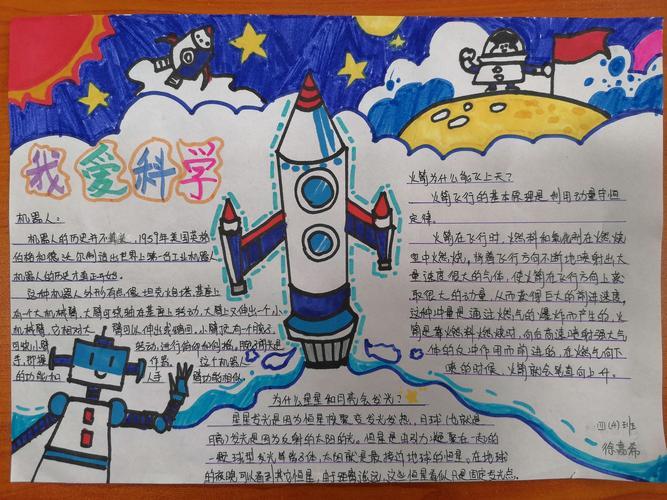 我爱科学
机器人：
机器人的历史并不算长，1959年美国英格
伯格和德沃尔制造出世界上第一台工业机器人
机器人的历史才真正开始
这种机器人外形有点像坦克炮塔，基座上
有一个大机械臂，大臂可绕轴在基座上转动，大臂上又伸出一个小
机械臂，它相对大臂可以伸出或缩回，小臂顶有一个腕子
可绕小臂转动，进行俯仰和侧摇，腕子前头是
手，即操作器，这个机器人
的功能和人手臂功能相似
火箭为什么能飞上天？
火箭飞行的基本原理是利用动量守恒
定律。
火箭在飞行时，燃料和氧化剂在燃烧
室中燃烧，
量速度很大的气体，使火箭在飞行方向上获
取很大的动量，从而获得巨大的前进速度，
这种冲量是通过燃气的爆炸而产生的，火
箭是靠燃料燃烧时，向后高速喷射强大气
体的反冲作用而前进的，在燃气向下
喷的时候，火箭就会笔直向上升。
为什么星星和月亮会发光？
星星发光是因为恒星核聚变发光发热，月球（也就是
月亮）发光是因为反射的太阳的光。恒星是由引力凝聚在一起的
一颗球型发光等离子体，太阳就是最接近地球的恒星。在地球
的夜晚可以看到其它恒星，由于距离遥远，这些恒星看似只是固定发光点。
四(4)班
徐嘉希